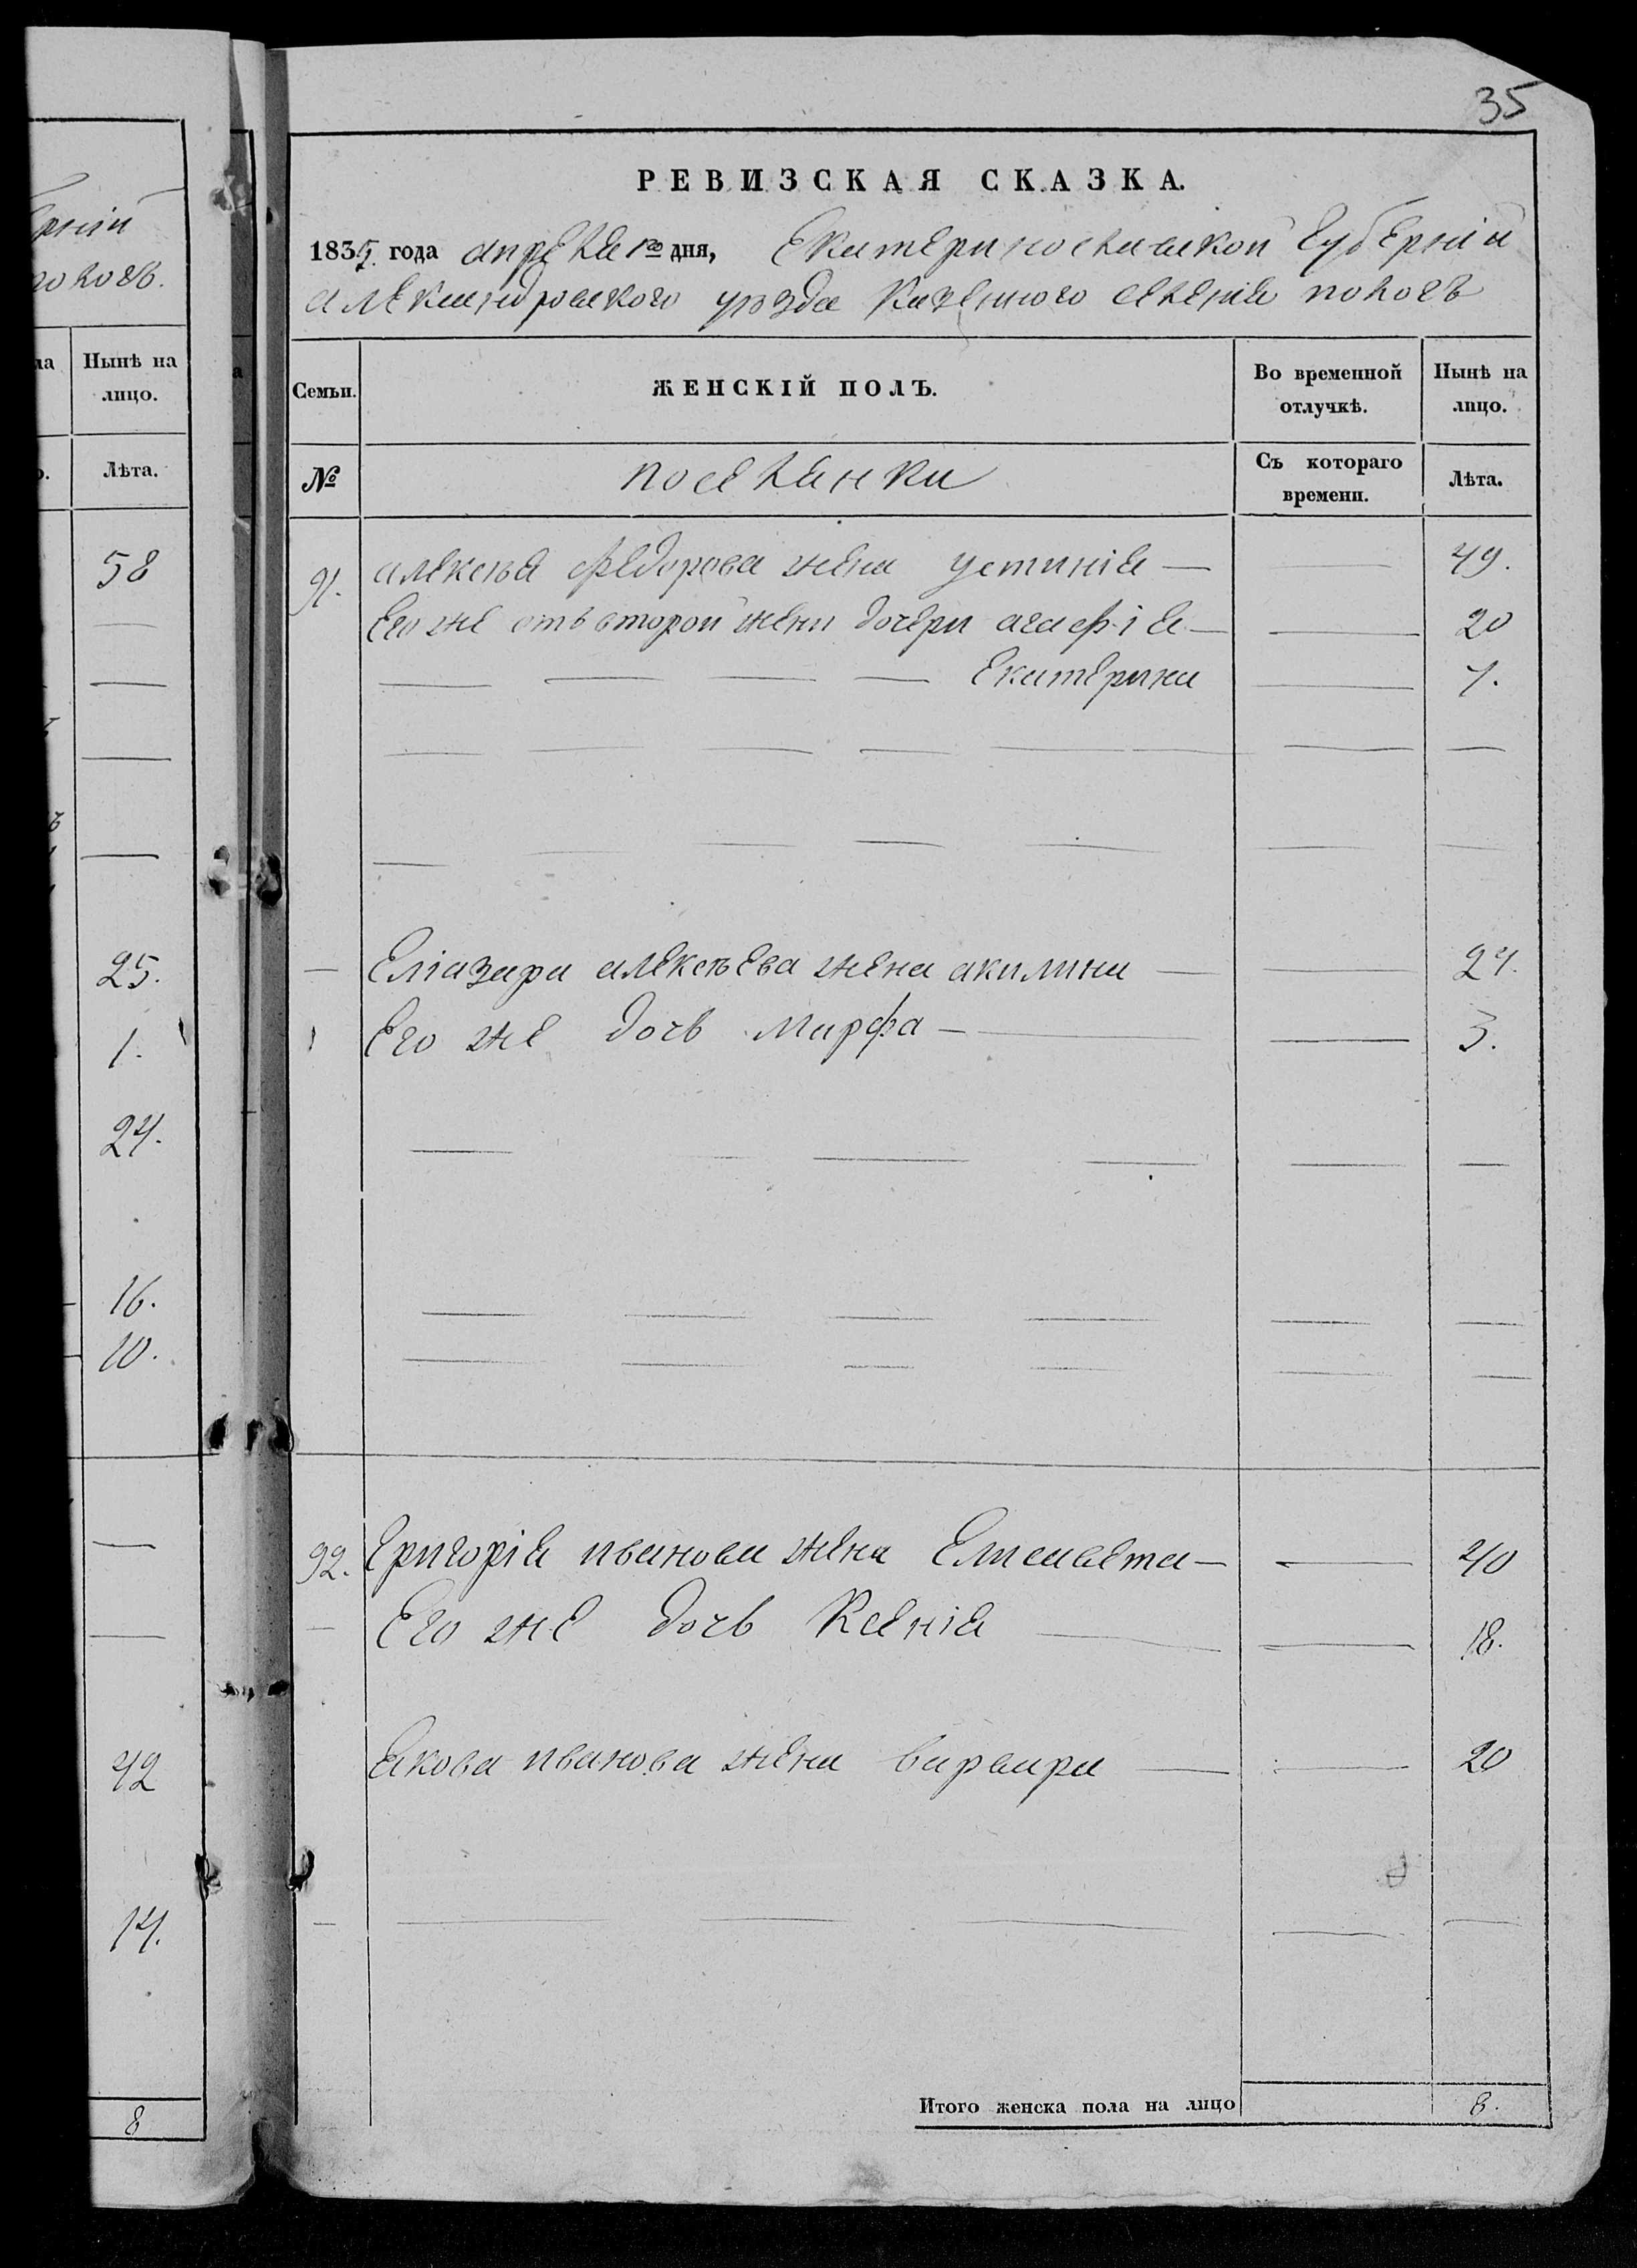 35
РЕВИЗСКАЯ СКАЗКА.
1835. года апреля 1го дня, Екатеринославской Губерніи
александровского уѣзда Казенного селенія пологъ
Семьи.
ЖЕНСКІЙ ПОЛЪ.
Во временной отлучкѣ.
Нынѣ на лицо.
№
поселянки
Съ котораго времени.
Лѣта.
91. алексѣя федорова жена устинія — 49.
Его же отъ второй жены дочери агафія — 20
Екатерина 7.
Еліазара алексѣева жена акилина — 24.
Его же дочь Марфа — 3.
92. Григорія иванова жена Елисавета — 40
Его же дочь Ксенія 18.
Якова иванова жена варвара 20
Итого женска пола на лицо 8.
Нынѣ на лицо.
Лѣта.
58
25.
1.
24.
16.
10.
42
14.
8